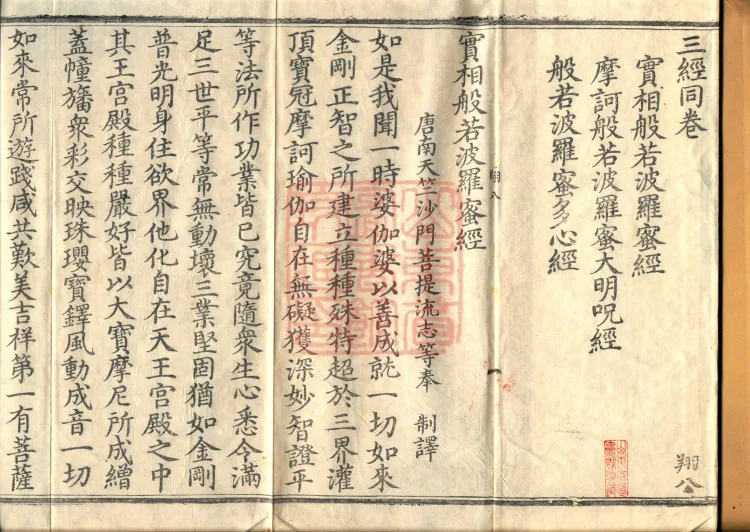 三經同卷
實相般若波羅蜜經
摩訶般若波羅蜜大明呪經
般若波羅蜜多心經
翔八
翔八
一
實相般若波羅蜜經
唐南天竺沙門菩提流志等奉 制譯
如是我聞一時婆伽婆以善成就一切如來
金剛正智之所建立種種殊特超於三界灌
頂寶冠摩訶瑜伽自在無礙獲深妙智證平
等法所作功業皆已究竟隨衆生心悉令滿
足三世平等常無動壞三業堅固猶如金剛
普光明身住欲界他化自在天王宮殿之中
其王宮殿種種嚴好皆以大寶摩尼所成繒
蓋幢旛衆彩交映珠瓔寶鐸風動成音一切
如來常所遊踐咸共歎美吉祥第一有菩薩